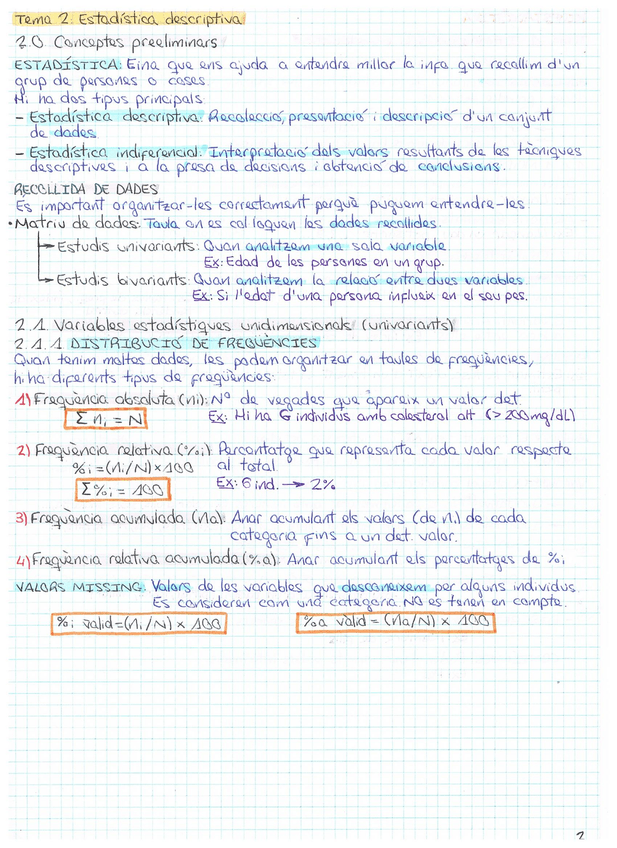 Tema 2: Estadística descriptiva
2.0. Conceptes preeliminars
ESTADÍSTICA: Eina que ens ajuda a entendre millor la info que recollim d'un
grup de persones o coses.
Hi ha dos tipus principals:
- Estadística descriptiva: Recolecció, presentació i descripció d'un conjunt
de dades.
- Estadística indiferencial: Interpretació dels valors resultants de les tècniques
descriptives i a la presa de decisions i obtenció de conclusions.
RECOLLIDA DE DADES
Es important organitzar-les correctament perquè puguem entendre-les.
• Matriu de dades: Taula on es col·loquen les dades recollides.
→ Estudis univariants: Quan analitzem una sola variable.
Ex: Edad de les persones en un grup.
→ Estudis bivariants: Quan analitzem la relació entre dues variables.
Ex: Si l'edat d'una persona influeix en el seu pes.
2.1. Variables estadístiques unidimensionals (univariants)
2.1.1. DISTRIBUCIÓ DE FREQÜÈNCIES
Quan tenim moltes dades, les podem organitzar en taules de freqüències,
hi ha diferents tipus de freqüències:
1) Freqüència absoluta (ni): Nº de vegades que apareix un valor det.
Σ ni = N Ex: Hi ha 6 individus amb colesterol alt (> 200 mg/dL)
2) Freqüència relativa (%i): Percentatge que representa cada valor respecte
%i = (ni/N) x 100 al total.
Σ%i = 100 Ex: 6 ind. → 2%
3) Freqüència acumulada (Na): Anar acumulant els valors (de ni) de cada
categoria fins a un det. valor.
4) Freqüència relativa acumulada (%a): Anar acumulant els percentatges de %i
VALORS MISSING: Valors de les variables que desconeixem per alguns individus.
Es consideren com una categoria NO es tenen en compte.
%i valid = (ni/N) x 100 %a vàlid = (Na/N) x 100
2